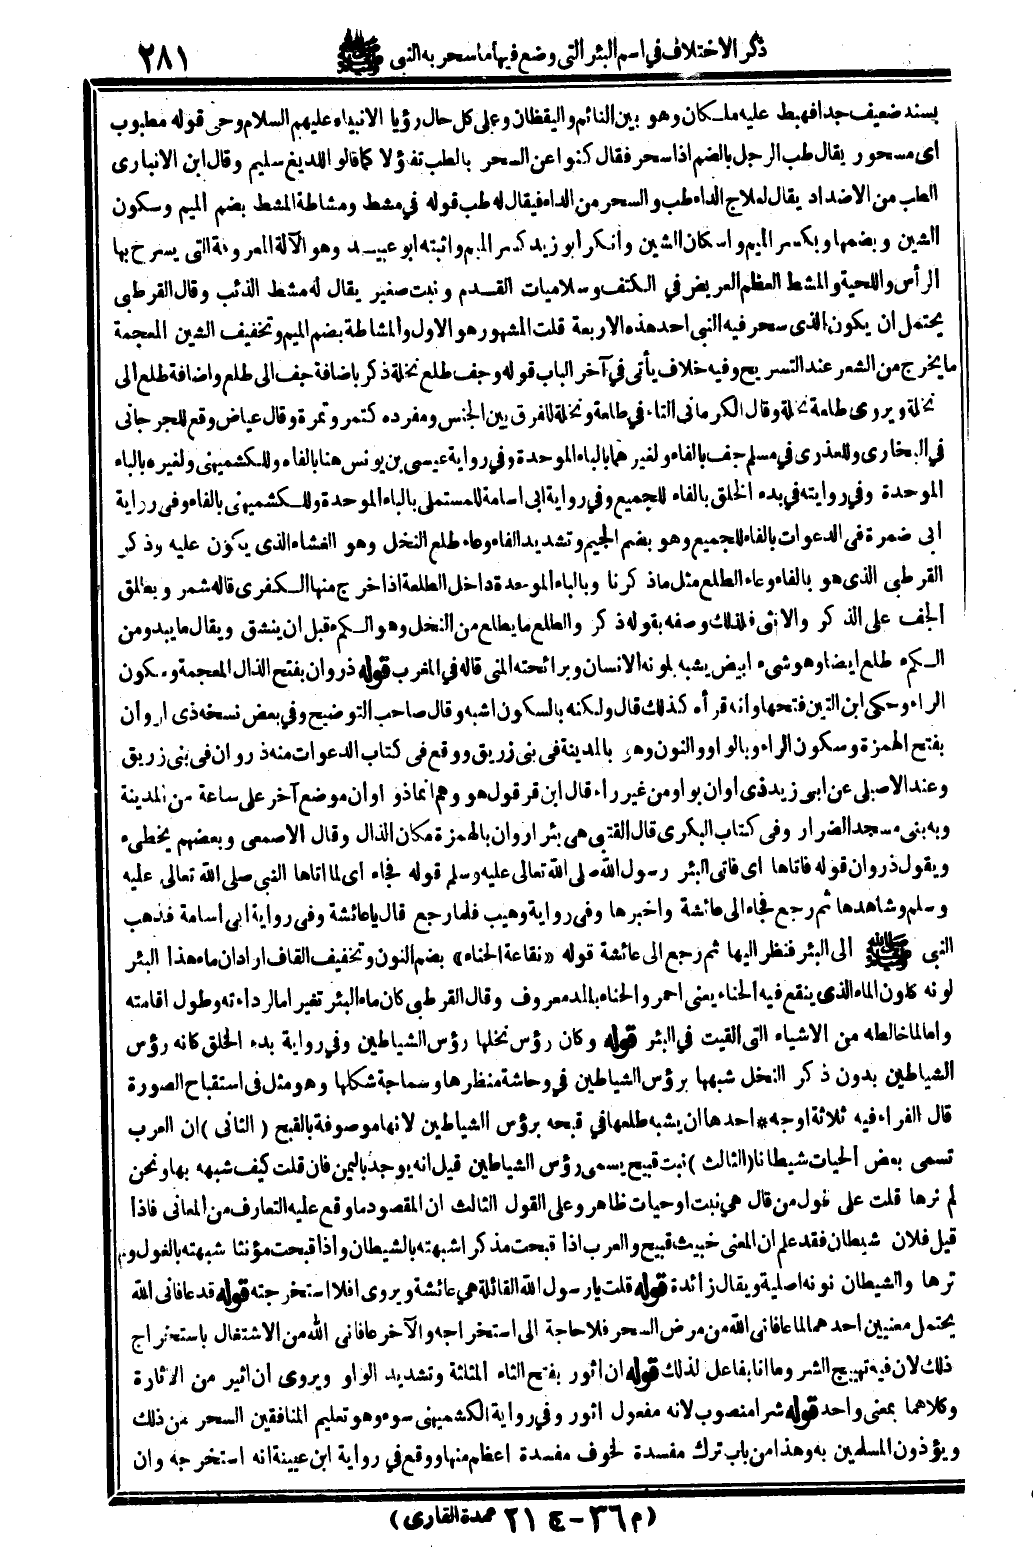 ذكر الاختلاف في اسم البئر التي وضع فيها ما سحر به النبي ﷺ ٢٨١
بسند ضعيف جدا فهبط عليه ملكان وهو بين النائم واليقظان وعلى كل حال رؤيا الانبياء عليهم السلام وحى قوله مطبوب
اى مسحور يقال طب الرجل بالضم اذا سحر فقال كنوا عن السحر بالطب تفؤلا كما قالوا للديغ سليم وقال ابن الانبارى
الطب من الاضداد يقال لعلاج الداء طب والسحر من الداء فيقال له طب قوله في مشط ومشاطة المشط بضم الميم وسكون
الشين وبضمها وبكسر الميم واسكان الشين وأنكر أبو زيد كسر الميم واثبته ابو عبيد وهو الآلة المعروفة التى يسرح بها
الرأس واللحية والمشط العظم العريض في الكتف وسلاميات القدم ونبت صغير يقال له مشط الذئب وقال القرطبى
يحتمل ان يكون الذى سحر فيه النبى احد هذه الاربعة قلت المشهور هو الاول والمشاطة بضم الميم وتخفيف الشين المعجمة
ما يخرج من الشعر عند التسريح وفيه خلاف يأتى في آخر الباب قوله وجف طلع نخلة ذكر باضافة جف الى طلع واضافة طلع الى
نخلة ويروى طلعة نخلة وقال الكرمانى التاء في طلعة ونخلة للفرق بين الجنس ومفرده كتمر وتمرة وقال عياض وقع للجرجانى
في البخارى وللعذرى في مسلم جف بالفاء ولغيرهما بالباء الموحدة وفي رواية عيسى بن يونس هنا بالفاء وللكشميهنى ولغيره بالباء
الموحدة وفي روايته في بدء الخلق بالفاء للجميع وفي رواية ابى اسامة للمستملى بالباء الموحدة وللكشميهنى بالفاء وفى رواية
ابى ضمرة فى الدعوات بالفاء للجميع وهو بضم الجيم وتشديد الفاء وعاء طلع النخل وهو الغشاء الذى يكون عليه وذكر
القرطبى الذى هو بالفاء وعاء الطلع مثل ما ذكرنا وبالباء الموحدة داخل الطلعة اذا خرج منها الكفرى قاله شمر ويطلق
الجف على الذكر والانثى فلذلك وصفه بقوله ذكر والطلع ما يطلع من النخل وهو الكم قبل ان ينشق ويقال ما يبدو من
الكم طلع ايضا وهو شىء ابيض يشبه بلونه الانسان وبرائحته المنى قاله في المغرب قوله ذروان بفتح الذال المعجمة وسكون
الراء وحكى ابن التين فتحها وانه قرأه كذلك قال ولكنه بالسكون اشبه وقال صاحب التوضيح وفي بعض نسخه ذى اروان
بفتح الهمزة وسكون الراء وبالواو والنون وهو بالمدينة فى بنى زريق ووقع فى كتاب الدعوات منه ذروان فى بنى زريق
وعند الاصيلى عن ابى زيد ذى اوان بواو من غير راء قال ابن قرقول هو وهم انما ذو اوان موضع آخر على ساعة من المدينة
وبه بنى مسجد الضرار وفى كتاب البكرى قال القتبى هى بئر اروان بالهمزة مكان الذال وقال الاصمعى وبعضهم يخطىء
ويقول ذروان قوله فاتاها اى فاتى البئر رسول الله صلى الله تعالى عليه وسلم قوله فجاء اى لما اتاها النبى صلى الله تعالى عليه
وسلم وشاهدها ثم رجع فجاء الى عائشة واخبرها وفى رواية وهيب فلما رجع قال يا عائشة وفى رواية ابى أسامة فذهب
النبى ﷺ الى البئر فنظر اليها ثم رجع الى عائشة قوله «نقاعة الحناء» بضم النون وتخفيف القاف اراد ان ماء هذا البئر
لونه كلون الماء الذى ينقع فيه الحناء يعنى احمر والحناء بالمد معروف وقال القرطبى كان ماء البئر تغير اما لرداءته وطول اقامته
واما لما خالطه من الاشياء التى القيت في البئر قوله وكان رؤس نخلها رؤس الشياطين وفي رواية بدء الخلق كانه رؤس
الشياطين بدون ذكر النخل شبهها برؤس الشياطين في وحاشة منظرها وسماجة شكلها وهو مثل فى استقباح الصورة
قال الفراء فيه ثلاثة اوجه * احدها ان يشبه طلعها في قبحه برؤس الشياطين لانها موصوفة بالقبح ( الثانى ) ان العرب
تسمى بعض الحيات شيطانا ( الثالث ) نبت قبيح يسمى رؤس الشياطين قيل انه يوجد باليمن فان قلت كيف شبهه بها ونحن
لم نرها قلت على قول من قال هى نبت او حيات ظاهر وعلى القول الثالث ان المقصود ما وقع عليه التعارف من المعانى فاذا
قيل فلان شيطان فقد علم ان المعنى خبيث قبيح والعرب اذا قبحت مذكرا شبهته بالشيطان واذا قبحت مؤنثا شبهته بالغول ولم
ترها والشيطان نونه اصلية ويقال زائدة قوله قلت يا رسول الله القائلة هى عائشة ويروى افلا استخرجته قوله قد عافانى الله
يحتمل معنيين احدهما لما عافانى الله من مرض السحر فلا حاجة الى استخراجه والآخر عافانى الله من الاشتغال باستخراج
ذلك لان فيه تهييج الشر وما انا بفاعل لذلك قوله ان اثور بفتح الثاء المثلثة وتشديد الواو ويروى ان اثير من الاثارة
وكلاهما بمعنى واحد قوله شرا منصوب لانه مفعول اثور وفي رواية الكشميهنى سوء وهو تعليم المنافقين السحر من ذلك
ويؤذون المسلمين به وهذا من باب ترك مفسدة لخوف مفسدة اعظم منها ووقع في رواية ابن عيينة انه استخرجه وان
(م ٣٦ - ج ٢١ عمدة القارى)